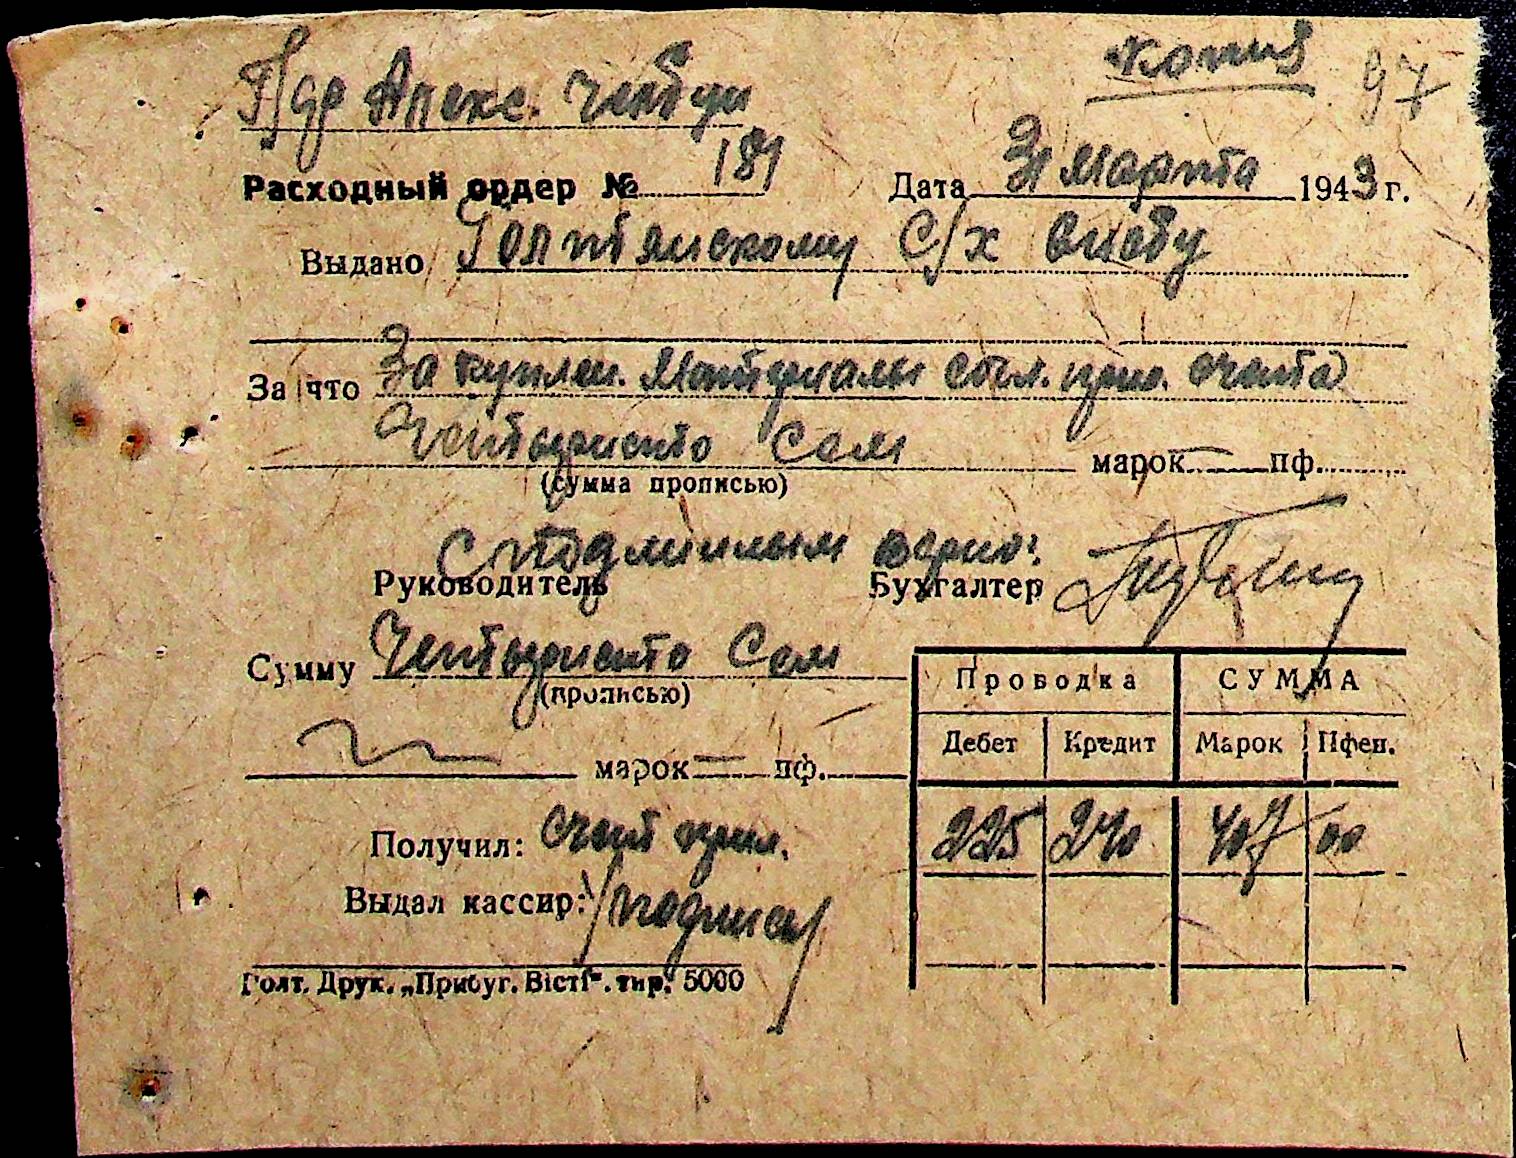 копия 97
Г/др Алекс.
Расходный ордер № 181 Дата 31 Марта 1943 г.
Выдано Голтянскому С/х
За что За куплен. Материалы согл. прил. счета
Четыреста Сем марок — пф.
(сумма прописью)
С подлинным верно:
Руководитель Бухгалтер
Сумму Четыреста Сем
(прописью)
марок — пф.
Проводка СУММА
Дебет Кредит Марок Пфен.
225 240 407 00
Получил: счет прил.
Выдал кассир: /подпись/
Голт. Друк. „Прибуг. Вісті“. тир. 5000